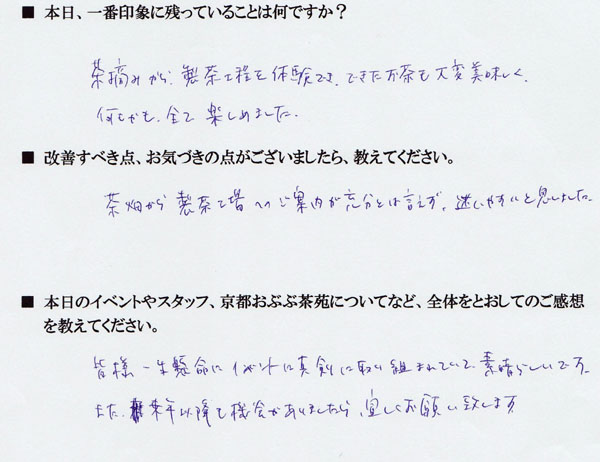 ■ 本日、一番印象に残っていることは何ですか?
茶摘みから、製茶工程を体験でき、できたお茶も大変美味しく、
何もかも、全て楽しめました。
■ 改善すべき点、お気づきの点がございましたら、教えてください。
茶畑から製茶工場へのご案内が充分とは言えず、迷いやすいと思いました。
■ 本日のイベントやスタッフ、京都おぶぶ茶苑についてなど、全体をとおしてのご感想
を教えてください。
皆様一生懸命にイベントに真剣に取り組まれていて、素晴らしいです。
また、来年以降も機会がありましたら、宜しくお願い致します